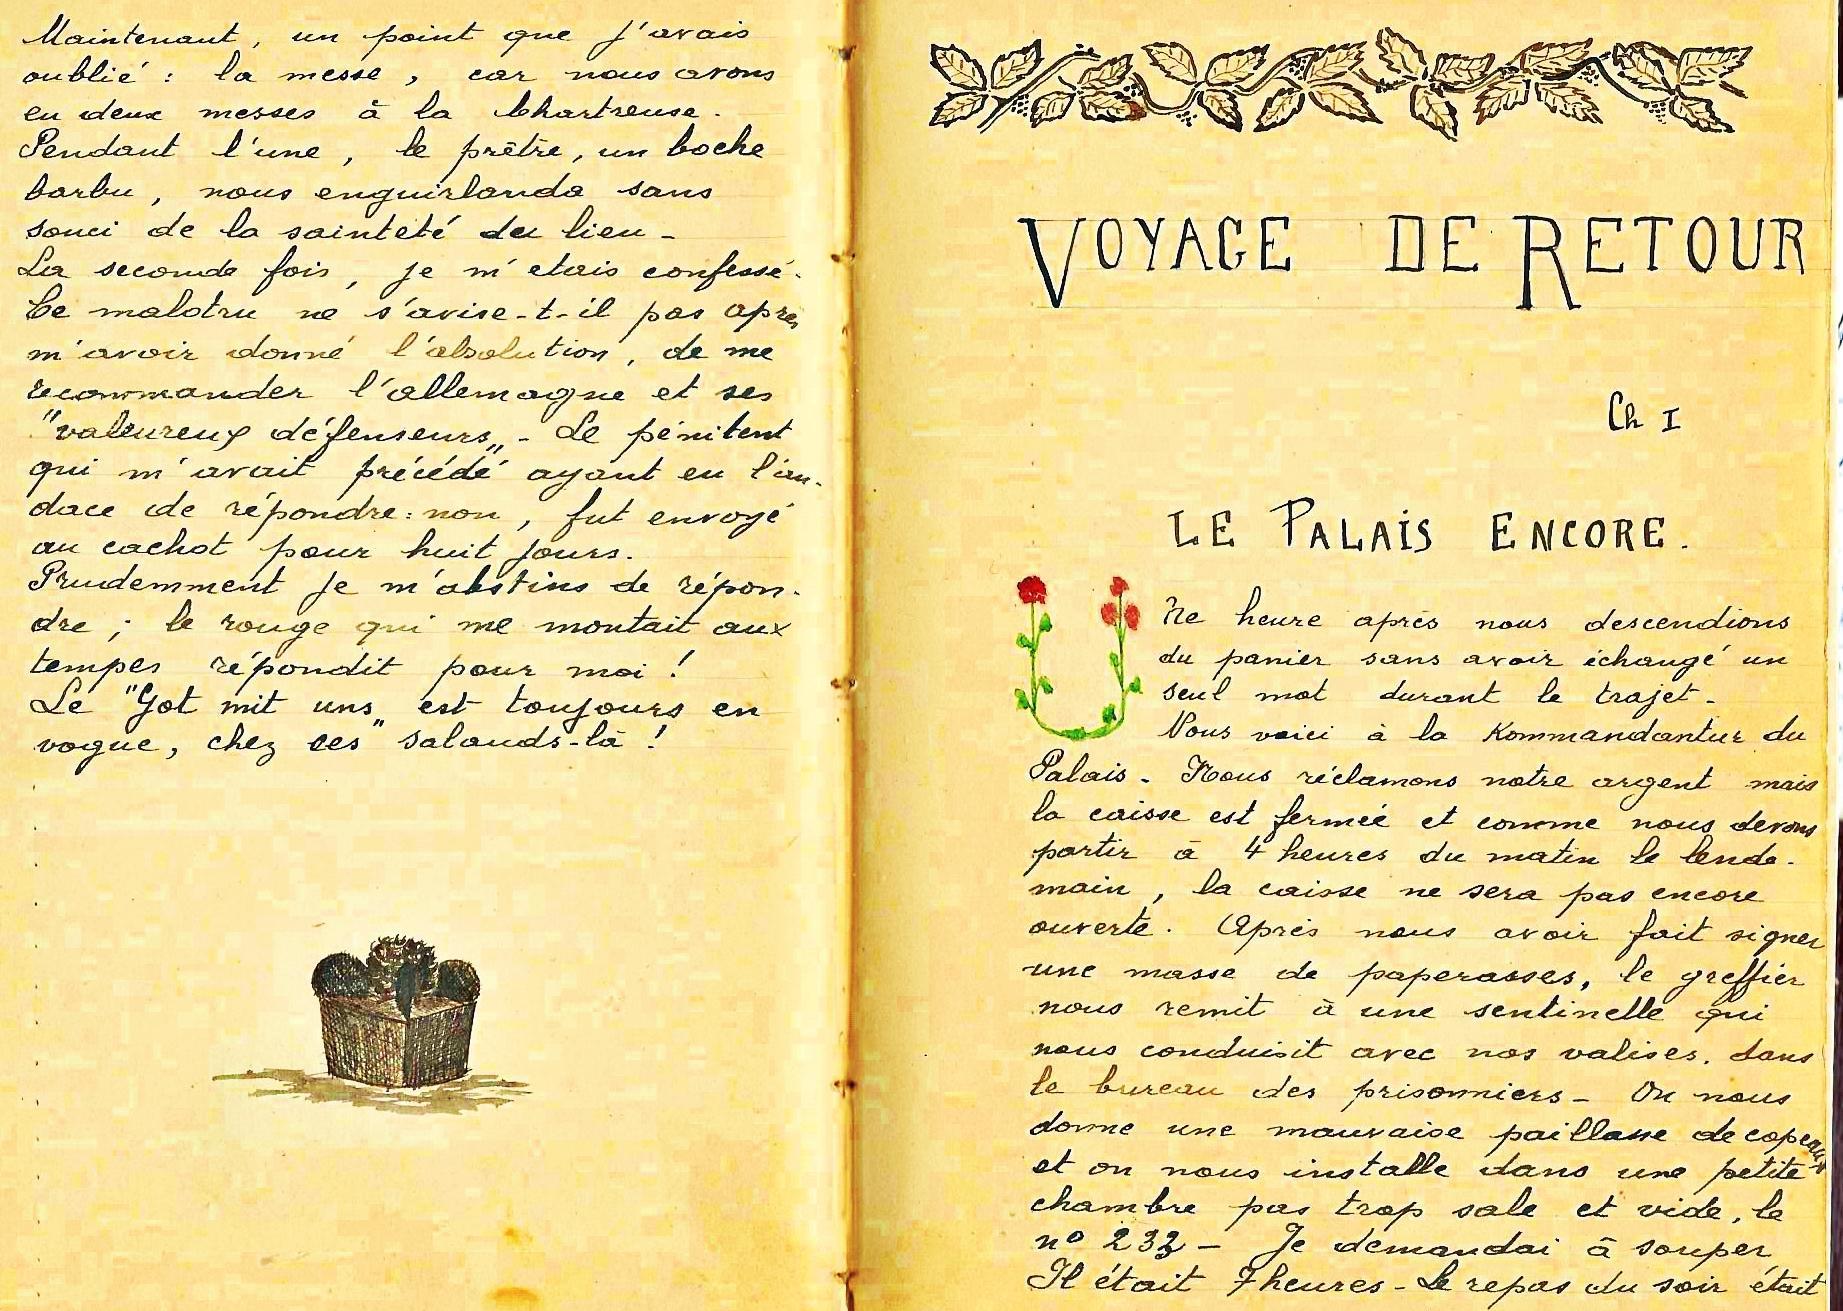 Maintenant, un point que j'avais
oublié : la messe, car nous avons
eu deux messes à la Chartreuse.
Pendant l'une, le prêtre, un boche
barbu, nous enguirlanda sans
souci de la sainteté du lieu -
La seconde fois, je m'etais confessé.
Ce malotru ne s'avise-t-il pas apres
m'avoir donné l'absolution, de me
recommander l'allemagne et ses
"valeureux défenseurs" - Le pénitent
qui m'avait précédé ayant eu l'au-
dace de répondre : non, fut envoyé
au cachot pour huit jours.
Prudemment je m'abstins de répon-
dre ; le rouge qui me montait aux
tempes répondit pour moi !
Le "Got mit uns" est toujours en
vogue, chez ces salauds-là !
VOYAGE DE RETOUR
Ch I
LE PALAIS ENCORE.
UNe heure après nous descendions
du panier sans avoir échangé un
seul mot durant le trajet -
Nous voici à la Kommandantur du
Palais - Nous réclamons notre argent mais
la caisse est fermée et comme nous devons
partir à 4 heures du matin le lende-
main, la caisse ne sera pas encore
ouverte. Après nous avoir fait signer
une masse de paperasses, le greffier
nous remit à une sentinelle qui
nous conduisit avec nos valises, dans
le bureau des prisonniers - On nous
donne une mauvaise paillasse de copeaux
et on nous installe dans une petite
chambre pas trop sale et vide, le
nº 232 - Je demandai à souper
Il était 7 heures - Le repas du soir était